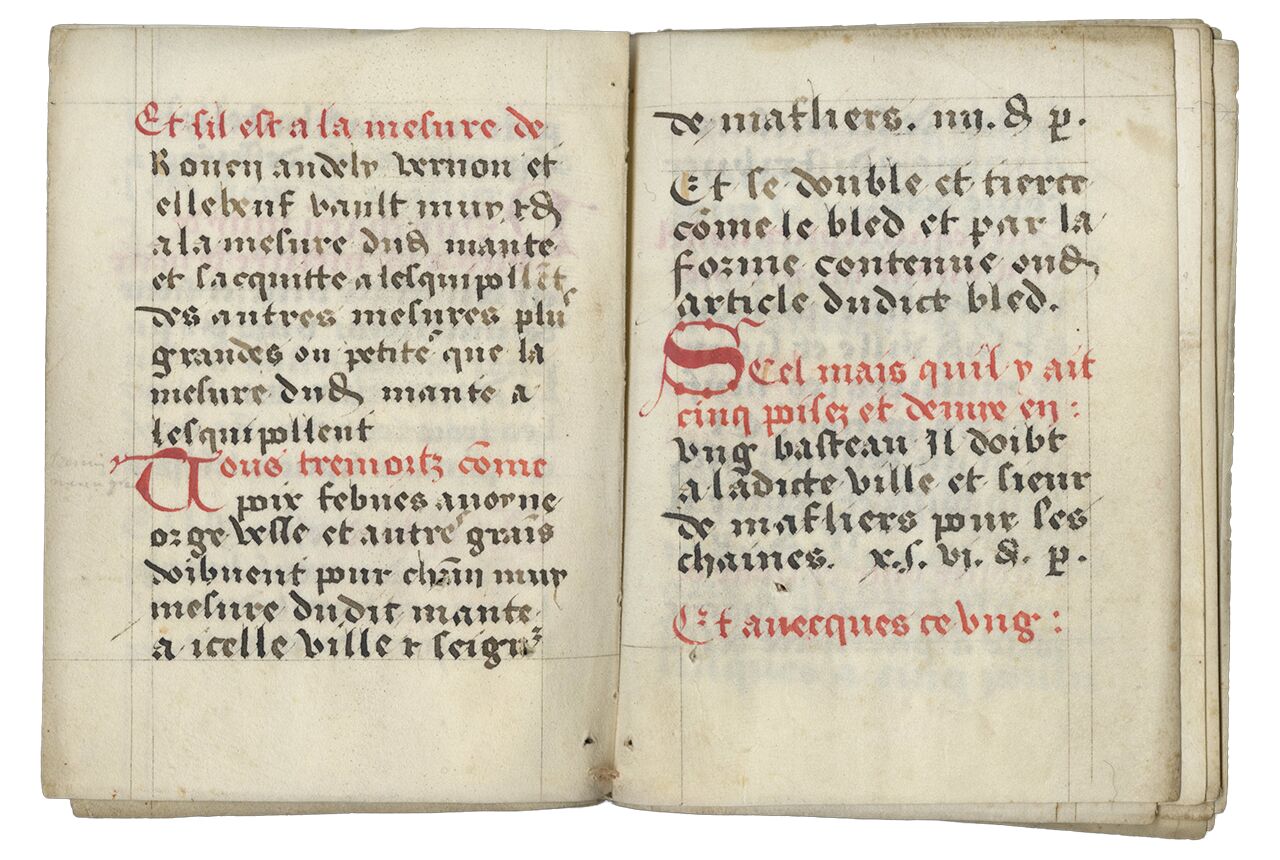 Et sil est a la mesure de
Rouen andely vernon et
ellebeuf vault muy
a la mesure dud mante
et sacquitte a lesquipollēt
des autres mesures plus
grandes ou petites que la
mesure dud mante a
lesquipollent
Tous tremortz cōme
poix febues auoyne
orge velle et autres grais
doibuent pour chān muy
mesure dudit mante
a icelle ville & seigr
de mafliers. iiij. d p.
Et se double et tierce
cōme le bled et par la
forme contenue oud
article dudict bled.
Sel mais quil y ait
cinq poisez et demye en :
vng basteau Il doibt
a ladicte ville et sieur
de mafliers pour ses
chaines. x.s. vi. d. p.
Et auecques ce vng :